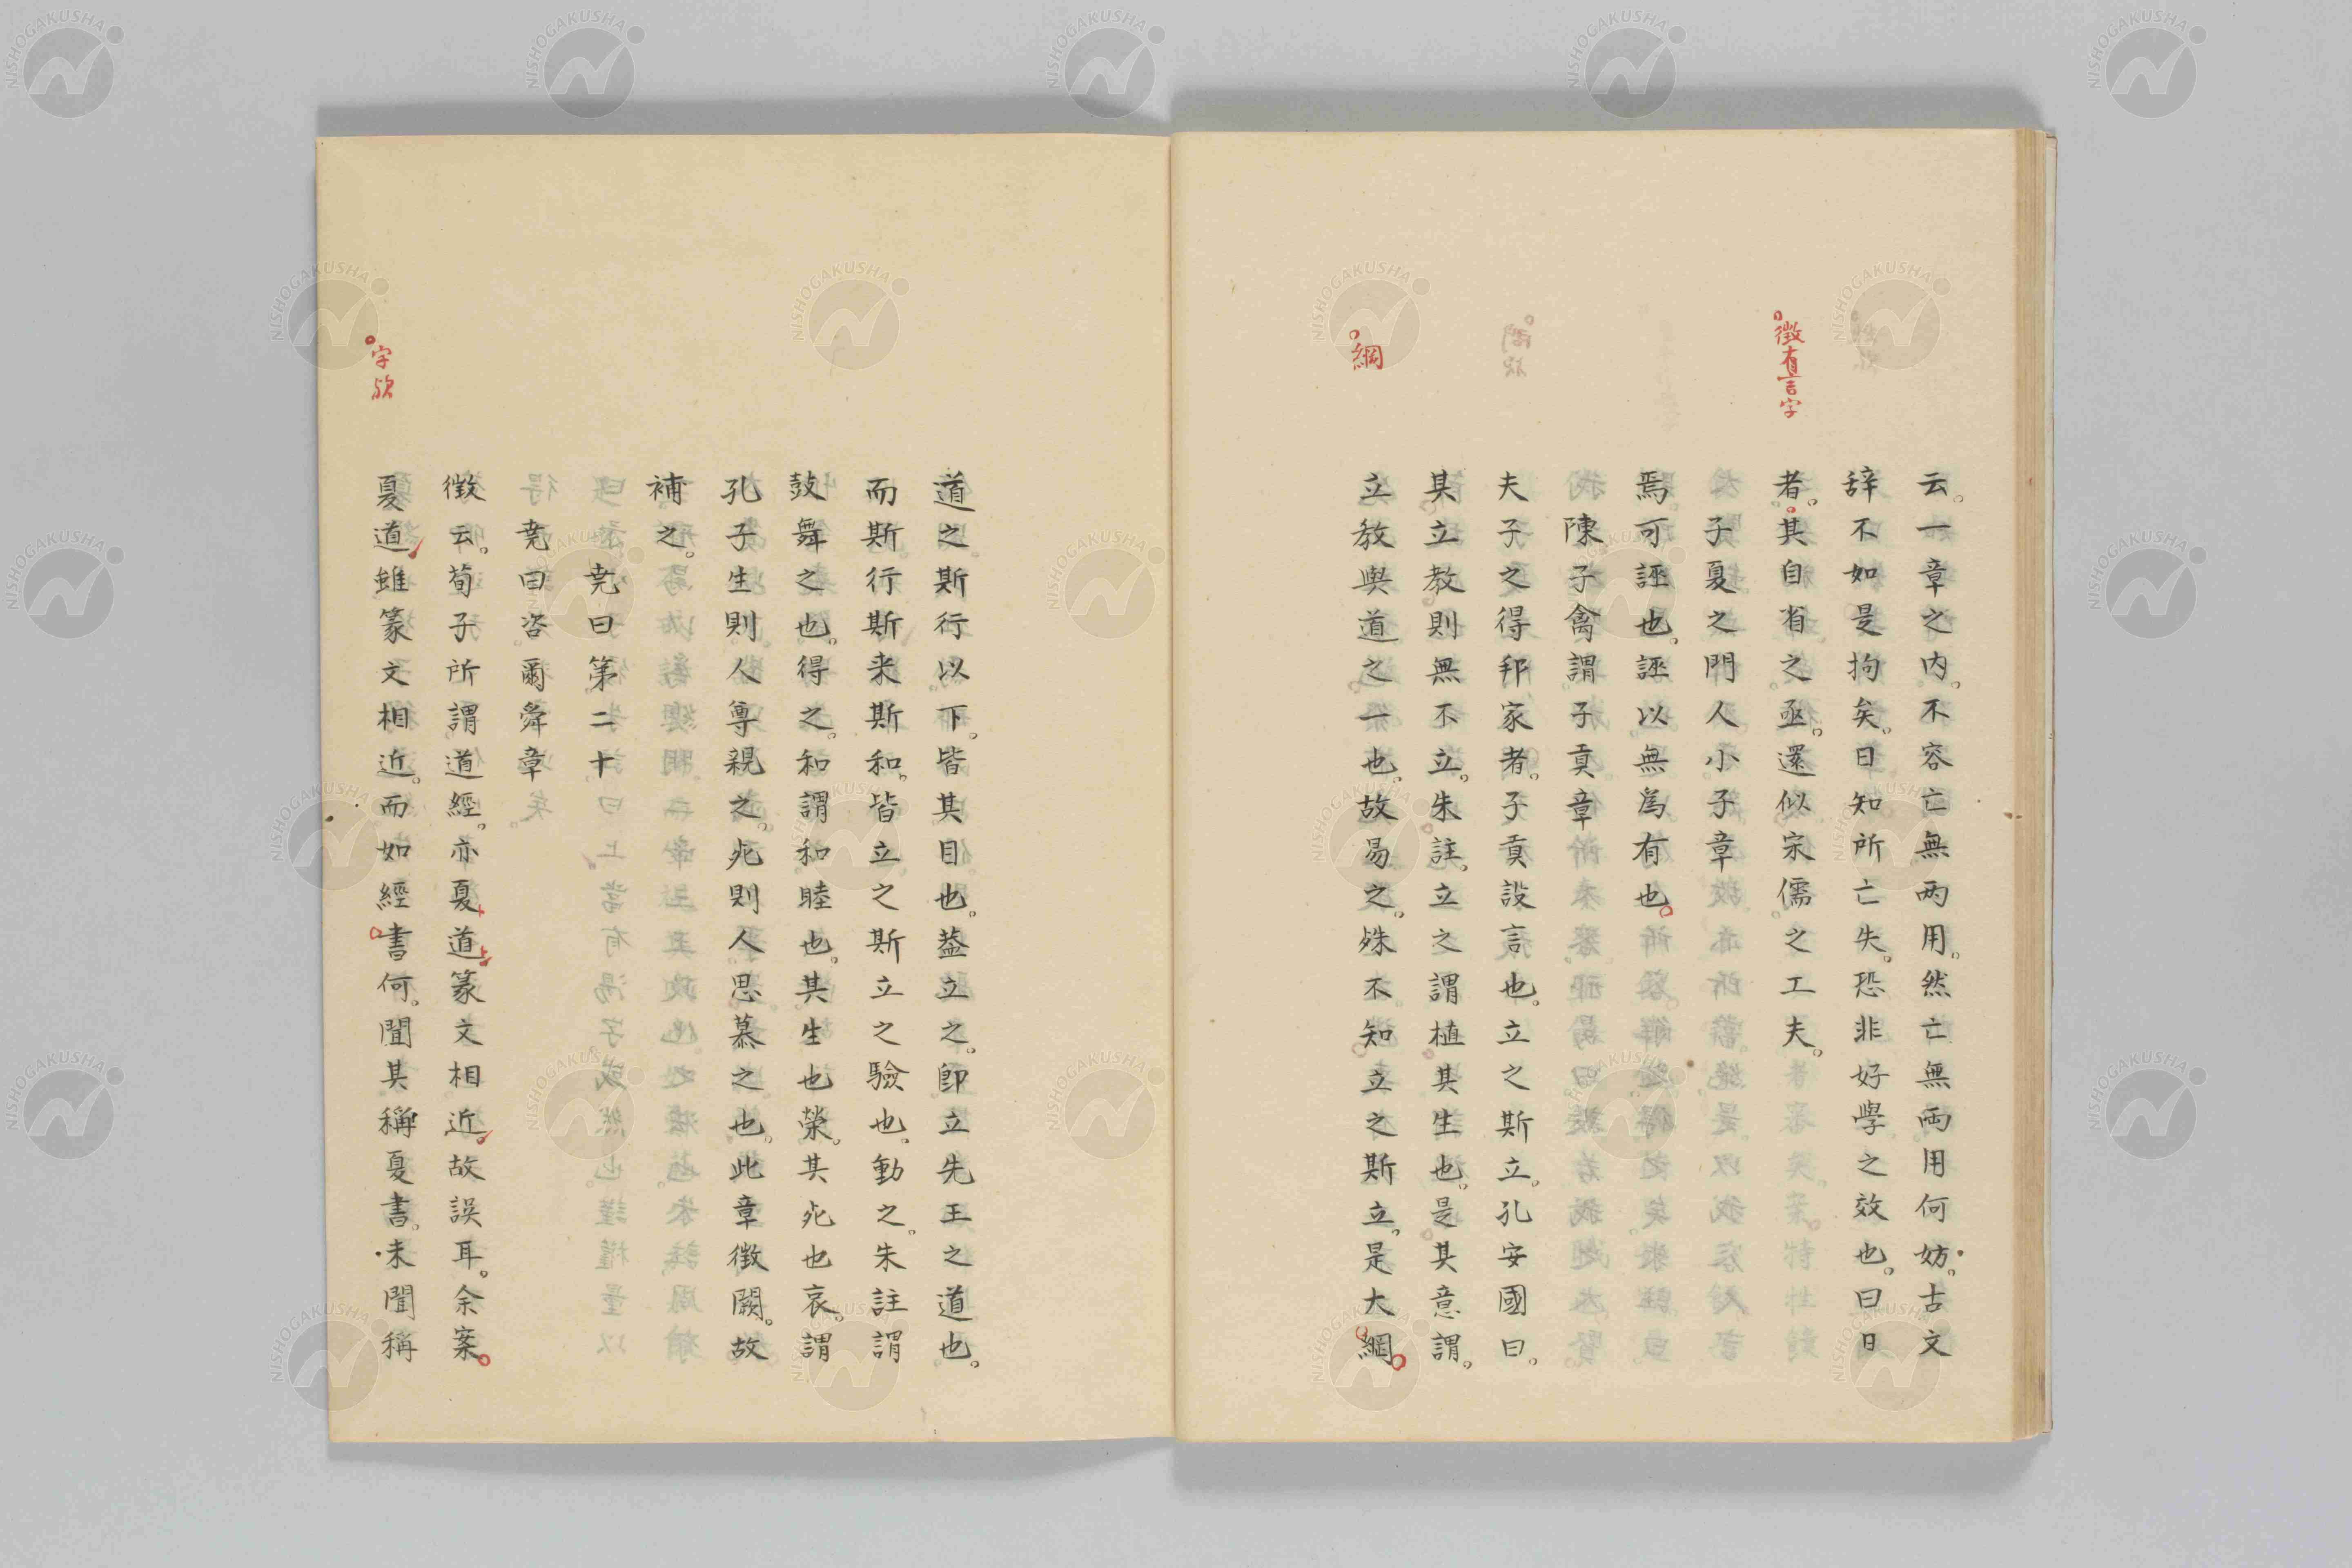 云。一章之内。不容亡無两用。然亡無両用何妨。古文
辞不如是拘矣。日知所亡失。恐非好學之效也。曰日
徴有言字
者。其自省之亟。還似宋儒之工夫。
子夏之門人小子章
焉可誣也。誣以無為有也。
陳子禽謂子貢章
夫子之得邦家者。子貢設言也。立之斯立。孔安國曰。
其立教則無不立。朱註。立之謂植其生也。是其意謂。
綱
立教與道之一也。故易之。殊不知立之斯立。是大綱。
道之斯行以下。皆其目也。蓋立之。即立先王之道也。
而斯行斯来斯和。皆立之斯立之驗也。動之。朱註謂
鼓舞之也。得之。和謂和睦也。其生也榮。其死也哀。謂
孔子生則人尊親之。死則人思慕之也。此章徴闕。故
補之。
堯曰第二十
堯曰咨爾舜章
徴云。荀子所謂道經。亦夏道篆文相近。故誤耳。余案。
字欤
夏道雖篆文相近。而如經書何。聞其稱夏書。未聞稱
NISHOGAKUSHA